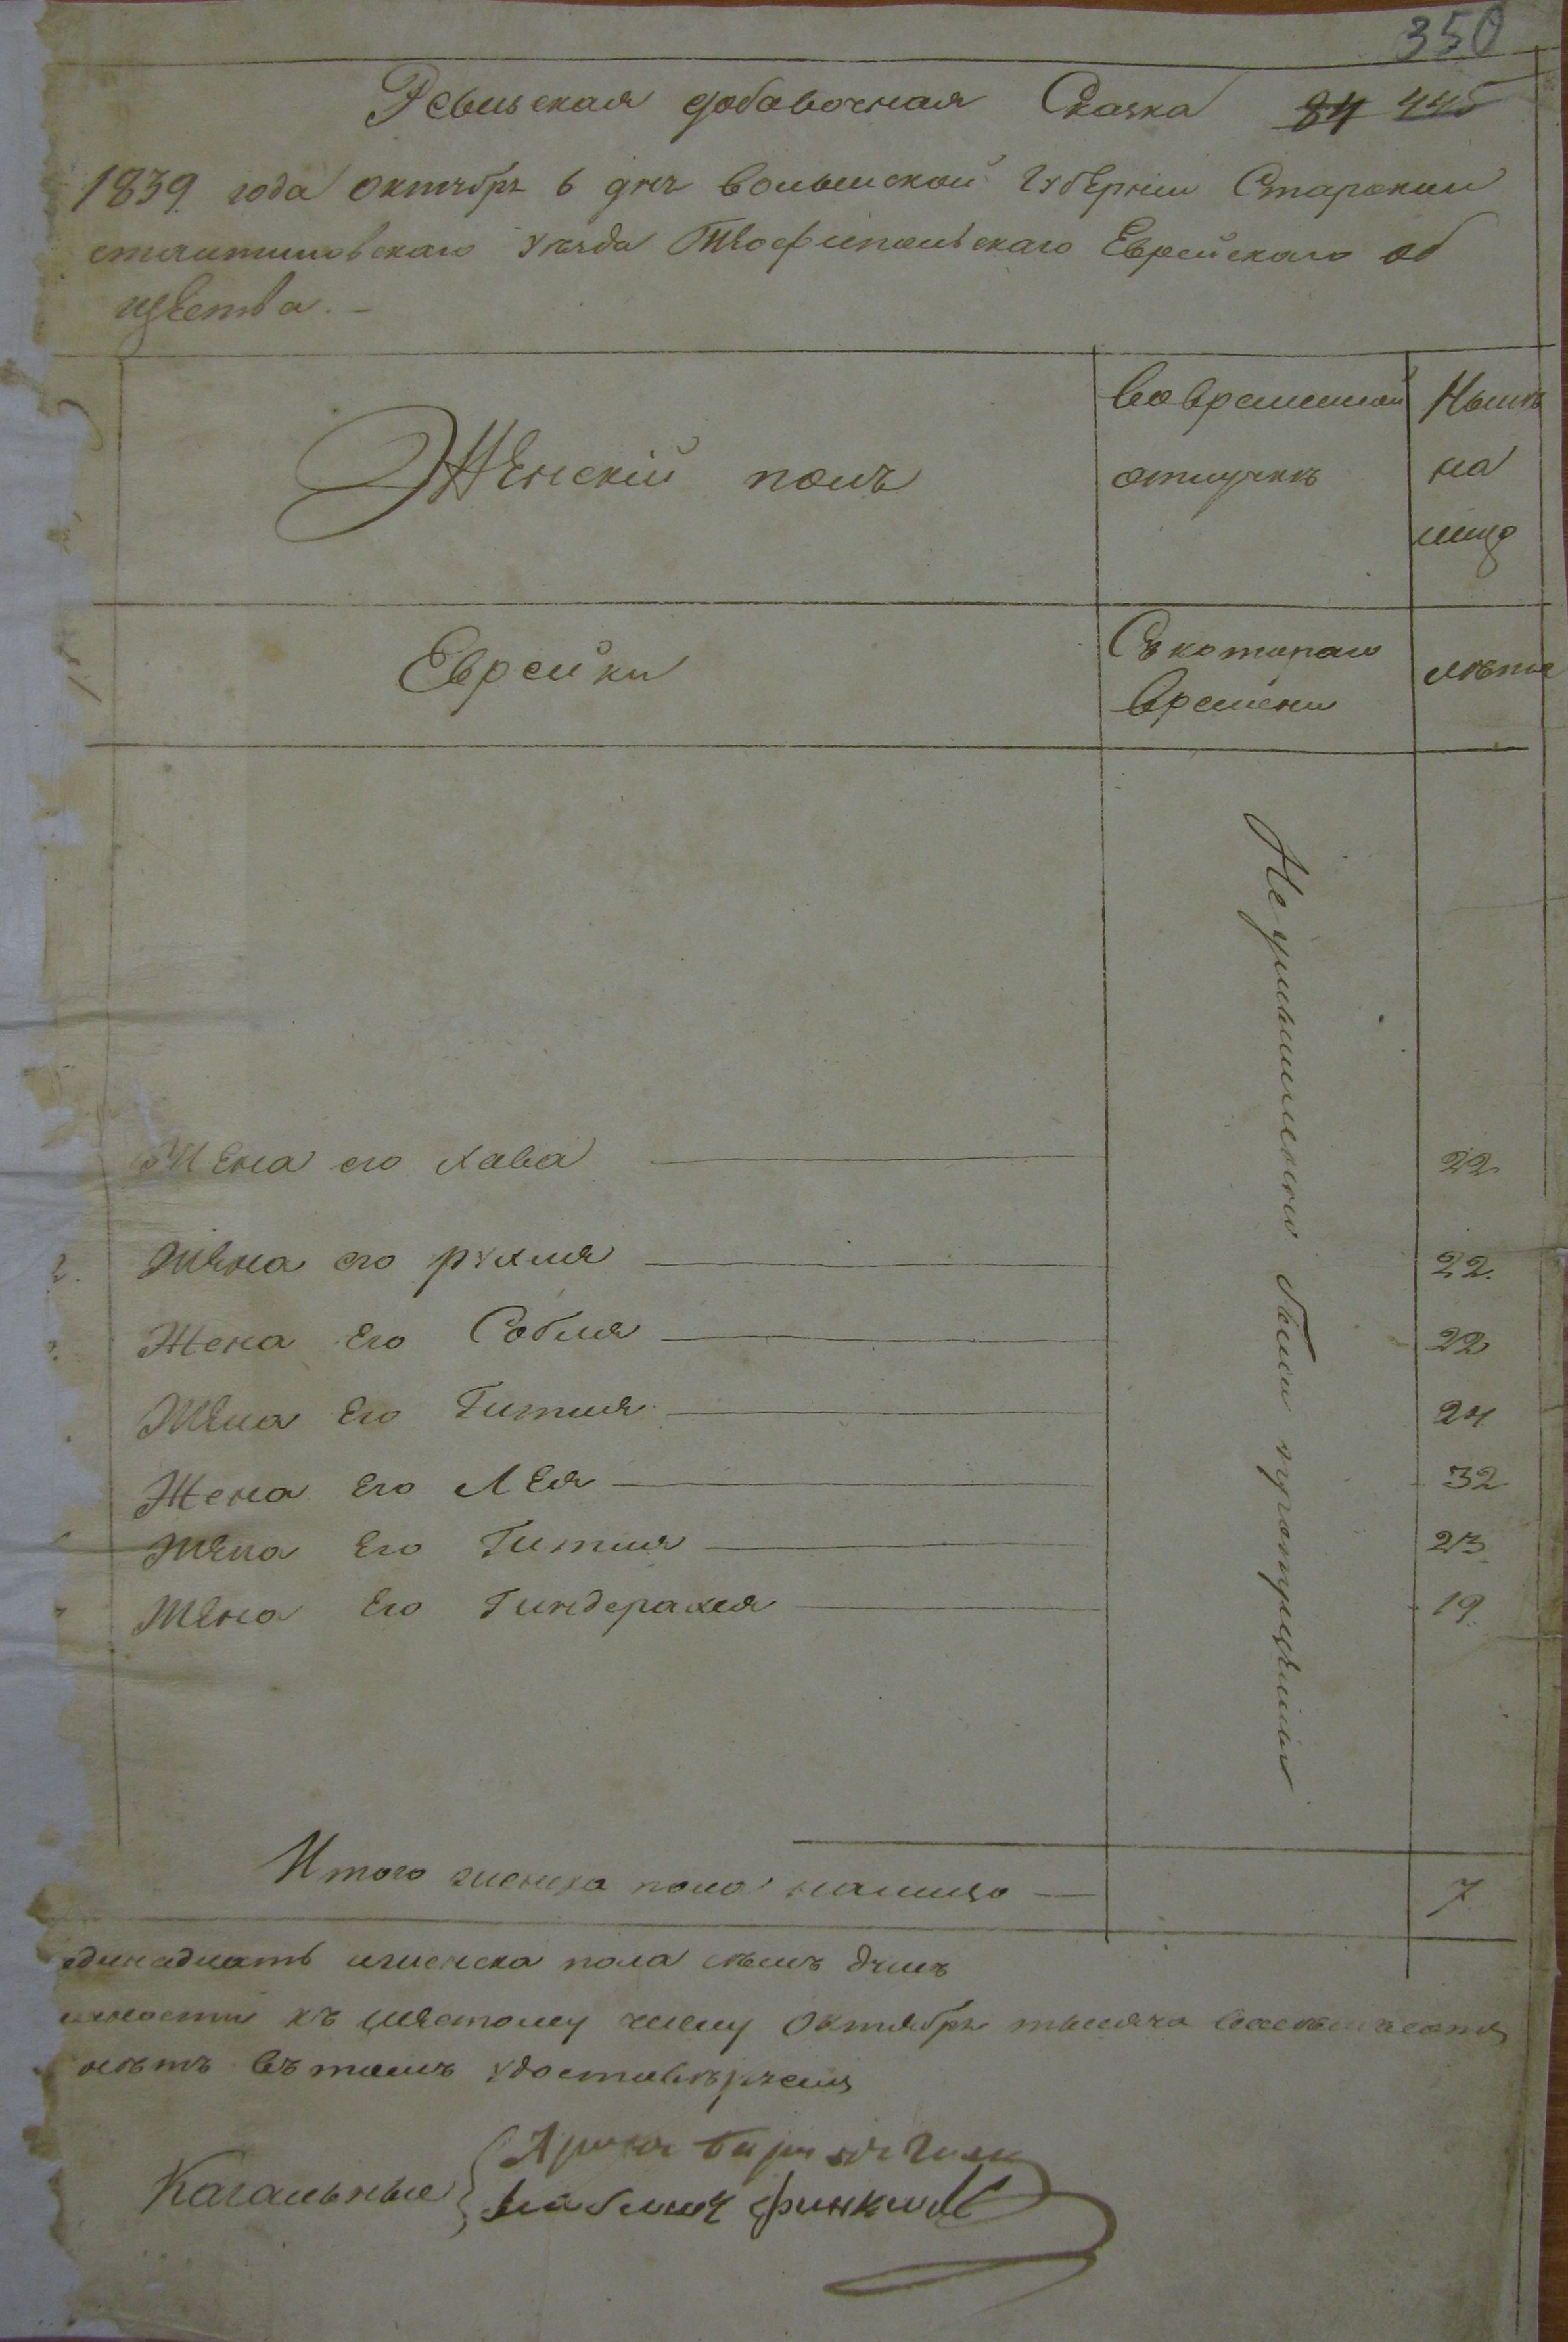 350
Ревизская добавочная Сказка 84 445
1839 года октября 6 дня волынской губерніи Старокон
стянтиновскаго уѣзда Теофипольскаго Еврейскаго об
щества. –
Женскій полъ
Во временной отлучкѣ
Нынѣ на лицо
Еврейки
Съ котораго времени
лѣта
Жена его хава 22.
2. Жена его рухля 22.
Жена Его Собля 22
Жена Его Гитля 24
Жена Его Лея 32
Жена Его Гитля 23
Жена Его Гиндерахля 19.
были
Итого женска пола налицо — 7
единадцать иженска пола семь душъ
къ шестому числу Октября тысяча
лѣтъ въ томъ
Кагальные
Финкель